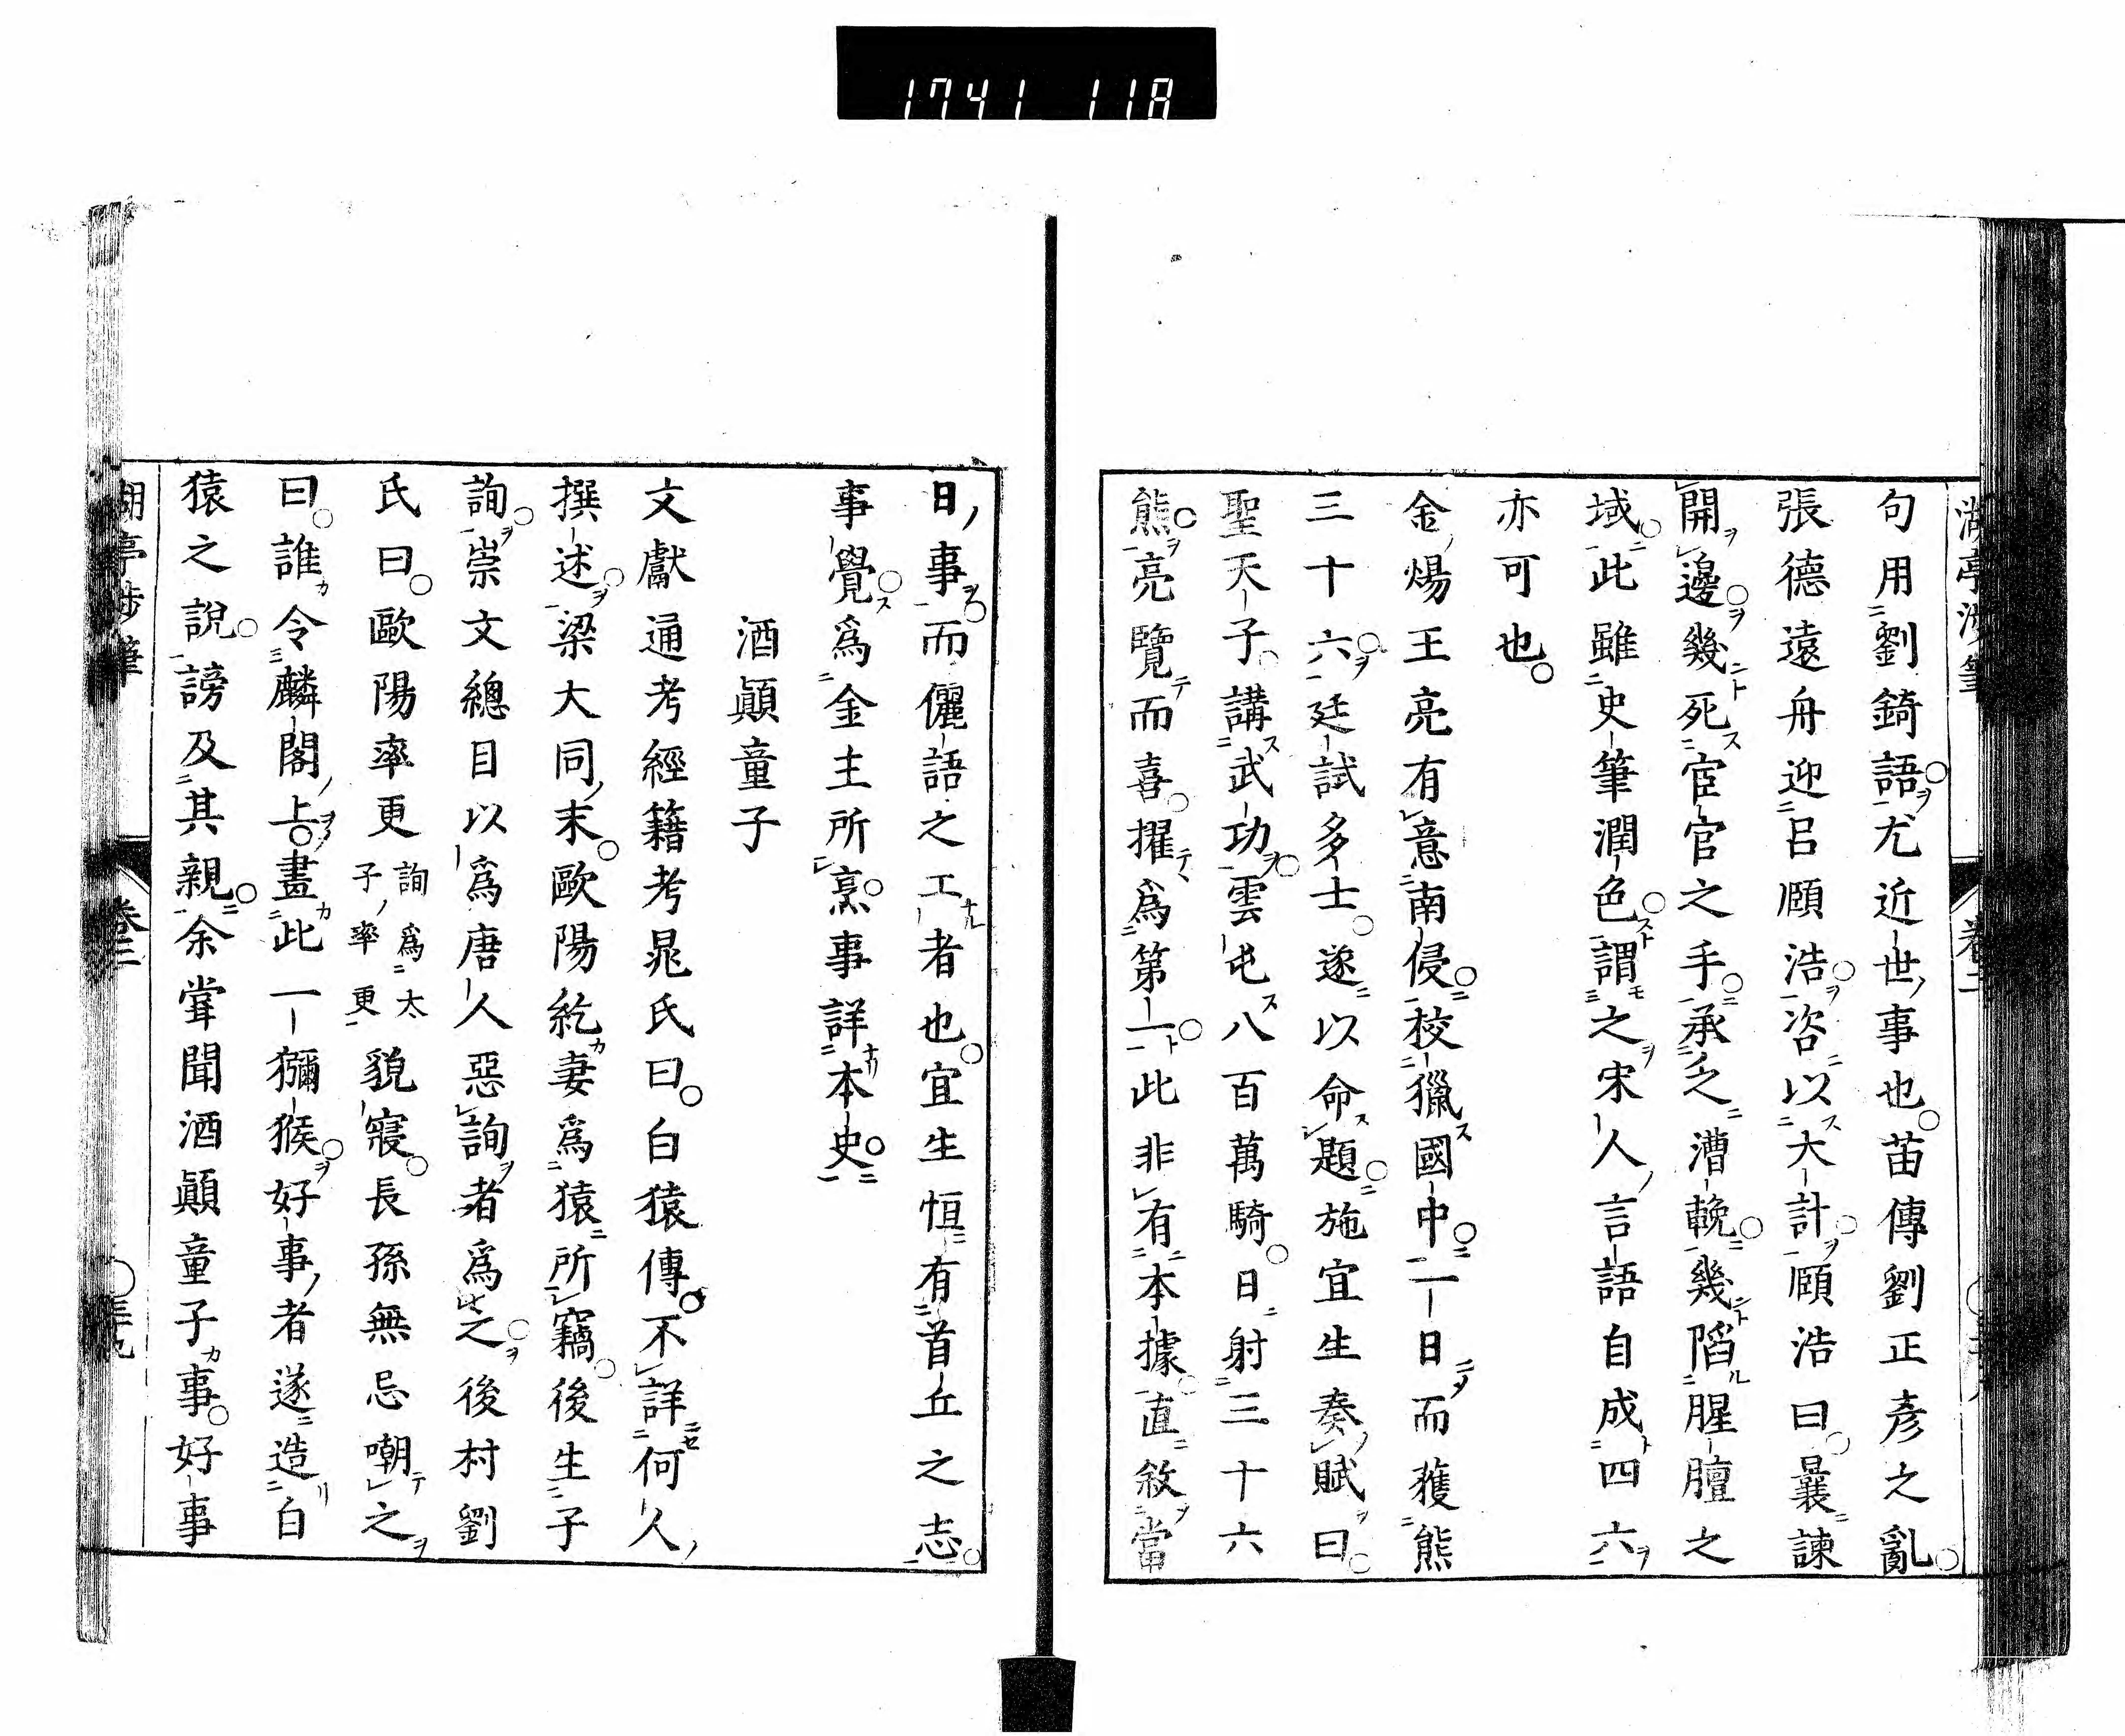 1741 118
句用劉錡語尤近世事也苗傳劉正彥之亂
張德遠舟迎呂頤浩咨以大計頤浩曰曩諫
開邊幾死宦官之手承乏漕輓幾陷腥膻之
域此雖史筆潤色謂之宋人言語自成四六
亦可也
金煬王亮有意南侵校獵國中一日而獲熊
三十六廷試多士遂以命題施宜生奏賦曰
聖天子講武功雲屯八百萬騎日射三十六
熊亮覽而喜擢爲第一此非有本據直敘當
日事而儷語之工者也宜生恒有首丘之志
事覺爲金主所烹事詳本史
酒顚童子
文獻通考經籍考晁氏曰白猿傳不詳何人
撰述梁大同末歐陽紇妻爲猿所竊後生子
詢崇文總目以爲唐人惡詢者爲之後村劉
氏曰歐陽率更詢爲太子率更貌寢長孫無忌嘲之
曰誰令麟閣上畫此一獼猴好事者遂造白
猿之說謗及其親余甞聞酒顚童子事好事
湖亭涉筆
卷二